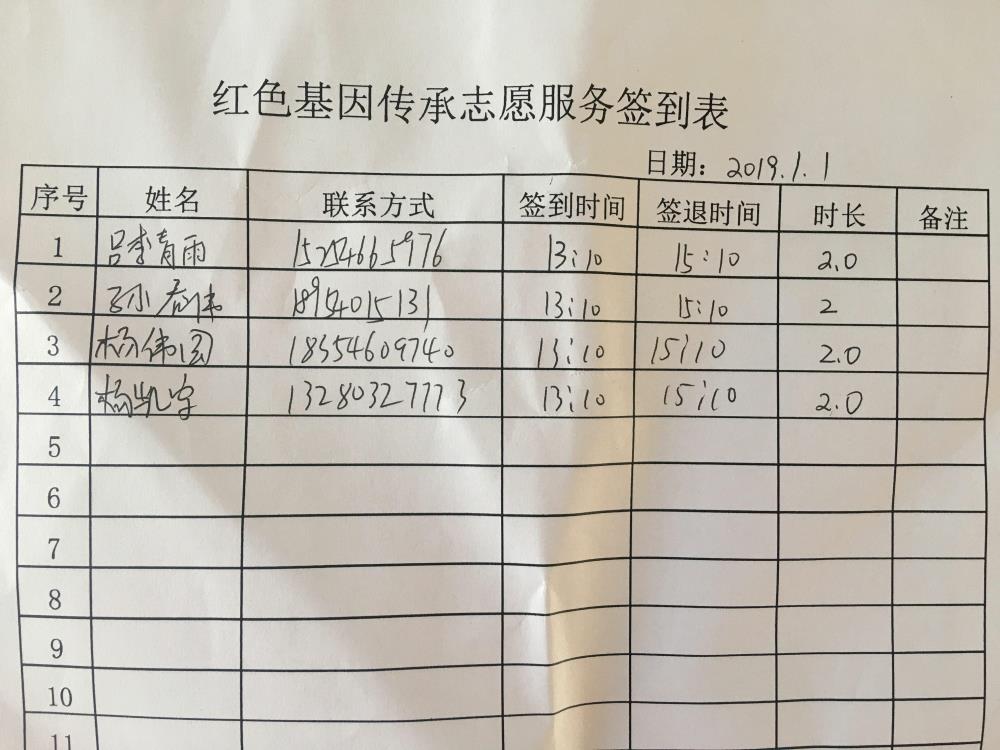 红色基因传承志愿服务签到表
日期：2019.1.1
序号 姓名 联系方式 签到时间 签退时间 时长 备注
1 吕李青雨 15254665976 13:10 15:10 2.0
2 孙 13:10 15:10 2
3 杨伟国 18354609740 13:10 15:10 2.0
4 杨凯宇 13280327773 13:10 15:10 2.0
5
6
7
8
9
10
11